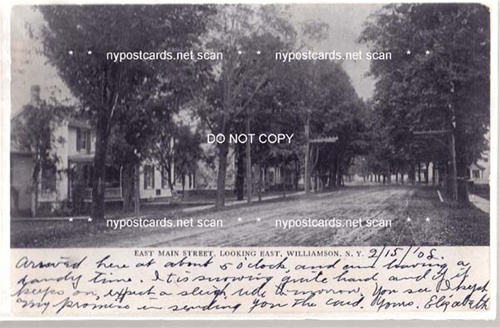 * nypostcards.net scan * nypostcards.net scan *
DO NOT COPY
* nypostcards.net scan * nypostcards.net scan *
EAST MAIN STREET, LOOKING EAST, WILLIAMSON, N. Y. 2/15/'08.
Arrived here at about 5 o'clock, and am having a
dandy time. It is snowing quite hard and if it
keeps on, expect a sleigh ride tomorrow. You see I kept
my promise in sending you the card. Yours, Elizabeth